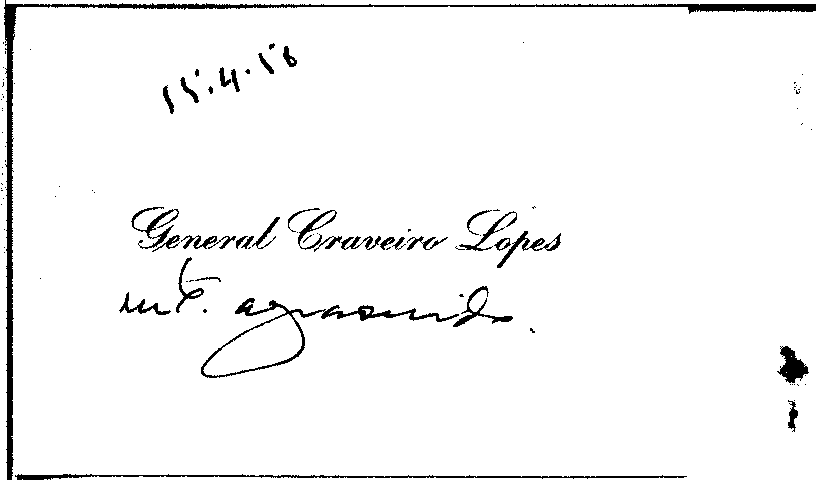 15.4.58
General Craveiro Lopes
mt. agradecido.